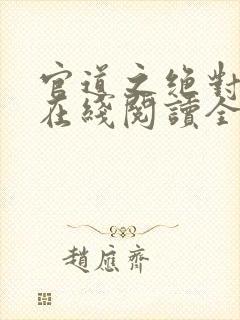 官道之絕對
在綫閱讀全
趙應齊